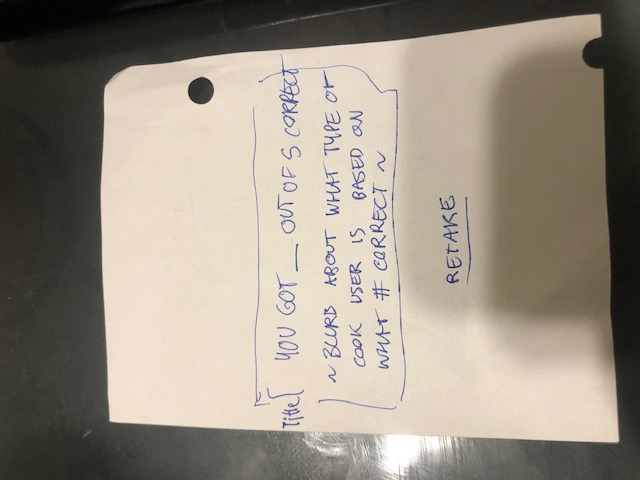 Title YOU GOT __ OUT OF 5 CORRECT
~ BLURB ABOUT WHAT TYPE OF
COOK USER IS BASED ON
WHAT # CORRECT ~
RETAKE